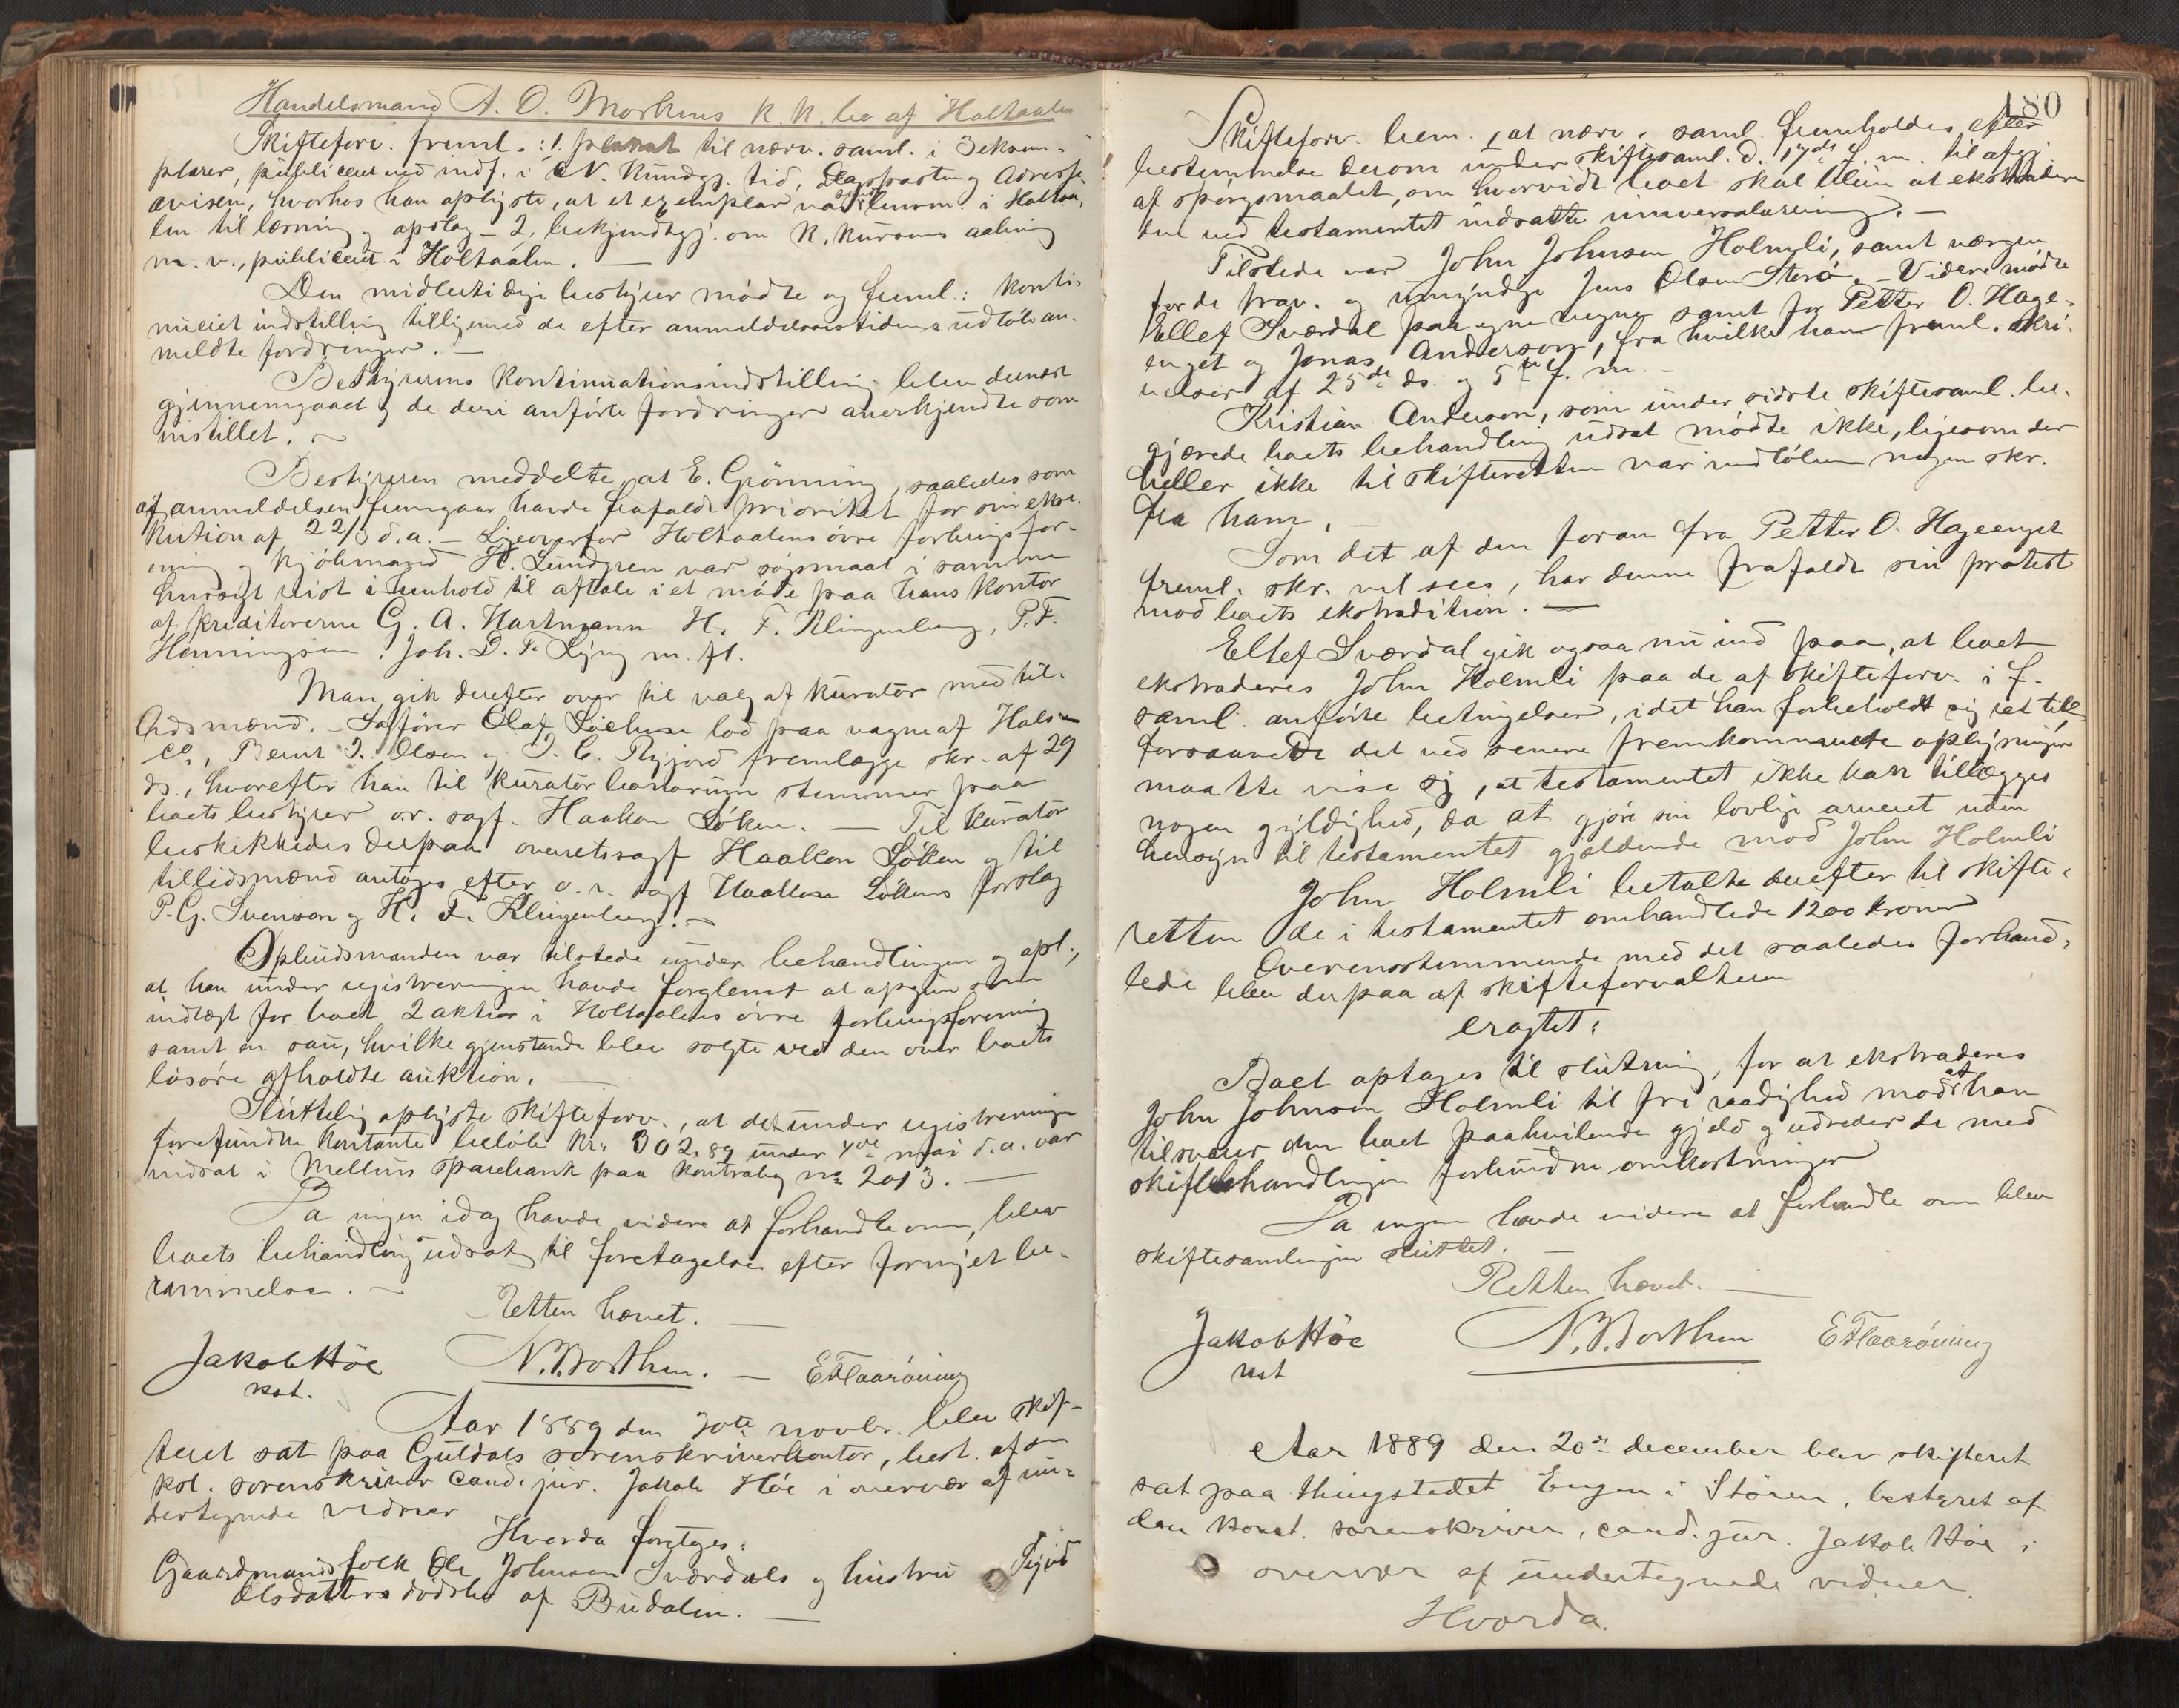 Handelsmand A. O. Morkens k. k. bo af Holtaalen
Skifteforv. freml.: 1. plakat til nærv. saml. i 3 eksem-
plarer, publiceret ved indf. i N. Kundgj. tid, Dagsposten og Adresse
avisen, hvorhos han oplyste, at et exemplar var sendt lensm. i Holtaa-
len til læsning og opslag – 2, bekjendtgj. om k. kursens aabning
m. v., publiceret i Holtaalen. —
Den midlertidige bestyrer mødte og freml.: konti-
nueret indstilling tilligemed de efter anmeldelsestidens udløb an-
meldte fordringer. —
Bestyrerens kontinuationsindstilling blev dernæst
gjennemgaaet og de deri anførte fordringer anerkjendte som
instillet. —
Bestyreren meddelte, at E. Grønning, saaledes som
af anmeldelsen fremgaar havde frafaldt prioritet for sin ekse-
kution af 22/3 d. a. — Ligeoverfor Holtaalens øvre forbrugsfor-
ening og kjøbmand H. Lundgren var søgsmaal i samme
hensigt reist i henhold til aftale i et møde paa hans kontor
af kreditorerne G. A. Hartmann H. F. Klingenberg, P. F.
Henningsen, Joh. D. F. Lyng m. fl.
Man gik derefter over til valg af kurator med til-
lidsmænd. – Sagfører Olaf Løchen lod paa vegne af Hals &
Co, Bernt J. Olsen og T. C. Ryjord fremlægge skr. af 29
ds., hvorefter han til kurator bonorum stemmer paa
boets bestyrer o.r. sagf. Haakon Løken. — Til kurator
beskikkedes derpaa overretssagf Haakon Løken og til
tillidsmænd antoges efter o. r. sagf Haakon Løkens forslag
P. G. Svenson og H. F. Klingenberg. —
Opbudsmanden var tilstede under behandlingen og opl.,
at han under registreringen havde forglemt at opgive som
indlagt for boet 2 aktier i Holtaalens øvre forbrugsforening
samt en sau, hvilke gjenstande blev solgte ved den over boets
løsøre afholdte auktion. —
Sluttelig oplyste skifteforv., at det under registreringen
forefundne kontante beløb kr. 302.89 under 4de mai d. a. var
indsat i Melhus sparebank paa kontrabog no 2013. —
Da ingen idag havde videre at forhandle om, blev
boets behandling udsat til foretagelse efter fornyet be-
rammelse. —
Retten hævet. —
Jakob Høe N. Borthen. — E Haarøning
kst.
Aar 1889 den 30te novbr. blev skif-
teret sat paa Guldals sorenskriverkontor, best. af den
kst. sorenskriver cand. jur. Jakob Høe i overvær af un-
dertegnede vidner
Hvorda foretoges:
Gaardmandsfolk Ole Johnsen Sværdals og hustru Sigrid
Olsdatters dødsbo af Budalen. —
180
Skifteforv. bem., at nærv. saml. fremholdes efter
bestemmelse derom under skiftesaml. d. 17de f. m. til afgj.
af spørgsmaalet, om hvorvidt boet skal blive at ekstradere
den ved testamentet indsatte universalarving. —
Tilstede var John Johnsen Holmli, samt værgen
for de frav. og umyndige Jens Olsen Sterø. – Videre mødte
Ellef Sværdal paa egne vegne samt for Petter O. Hage-
enget og Jonas Anderson, fra hvilke han freml. skri-
velser af 25de ds. og 5te f. m. —
Kristian Anderson, som under sidste skiftesaml. be-
gjærede boets behandling udsat mødte ikke, ligesom der
heller ikke til skifteretten var indløben nogen skr.
fra ham. —
Som det af den foran fra Petter O. Hageenget
freml. skr. vil sees, har denne frafaldt sin protest
mod boets ekstradition. —
Ellef Sværdal gik ogsaa nu ind paa, at boet
ekstraderes John Holmli paa de af skifteforv. i f.
saml. anførte betingelser, idet han forbeholdt sig ret til
forsaavidt det ved senere fremkommende oplysninger
maatte vise sig, at testamentet ikke kan tillægges
nogen gyldighed, da at gjøre sin lovlige arveret uden
hensyn til testamentet gjældende mod John Holmli
John Holmli betalte derefter til skifte-
retten de i testamentet omhandlede 1200 kroner
Overensstemmende med det saaledes forhand-
lede blev derpaa af skifteforvalteren
eragtet:
Boet optages til slutning, for at ekstraderes
John Johnsen Holmli til fri raadighed mod at han
tilsvarer den boet paahvilende gjæld og udreder de med
skiftebehandlingen forbundne omkostninger
Da ingen havde videre at forhandle om blev
skiftesamlingen sluttet. —
Retten hævet. —
Jakob Høe N. Borthen E Haarøning
kst
Aar 1889 den 20de december blev skifteret
sat paa thingstedet Engen i Støren, bestyret af
den konst. sorenskriver, cand. jur. Jakob Høe i
overvær af undertegnede vidner
Hvorda